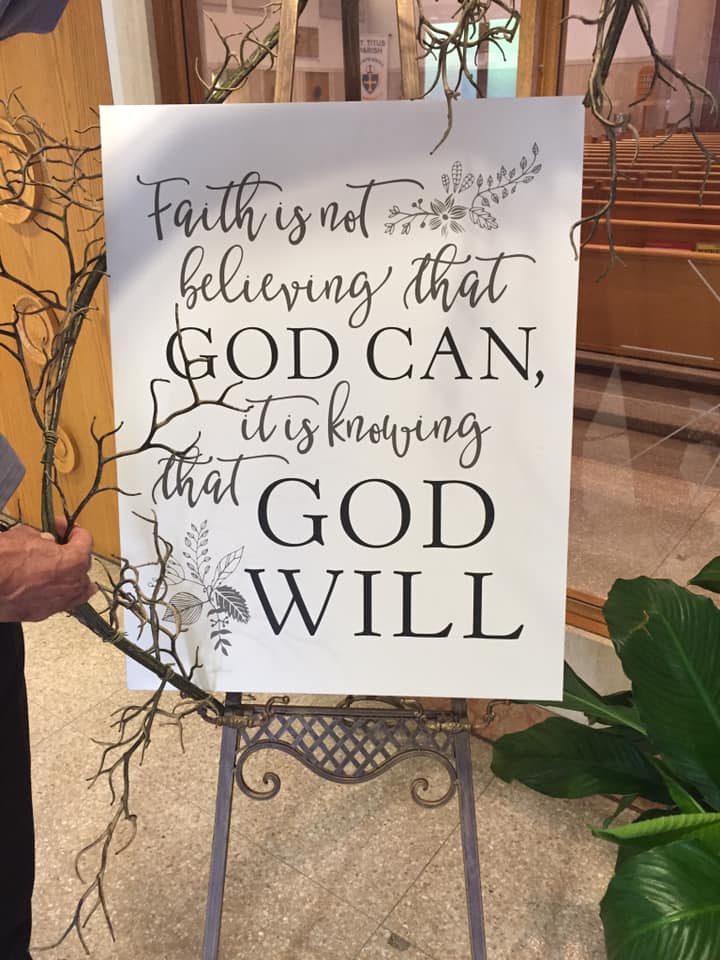 ST. TITUS
PARISH
Faith is not
believing that
GOD CAN,
it is knowing
that GOD
WILL